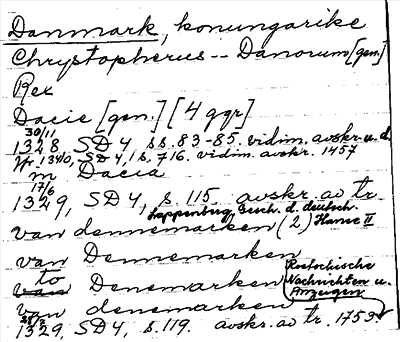 Danmark, konungarike
Chrystopherus -- Danorum [gen]
Rex
Dacie [gen.] [4 ggr]
30/11
1328, SD 4, ss. 83-85. vidim. avskr. u. d.
1340, SD 4, 1 s. 716. vidim. avskr. 1457
m Dacia
17/6
1329, SD 4, s. 115. avskr. av tr.
Lappenburg, Gesch. d. deutsch. Hanse II
van dennemarken (2)
van Dennemarken
to Denemarken
van denemarken
Rostockische
Nachrichten u.
Anzeigen
1329, SD 4, s. 119. avskr. av tr. 1753